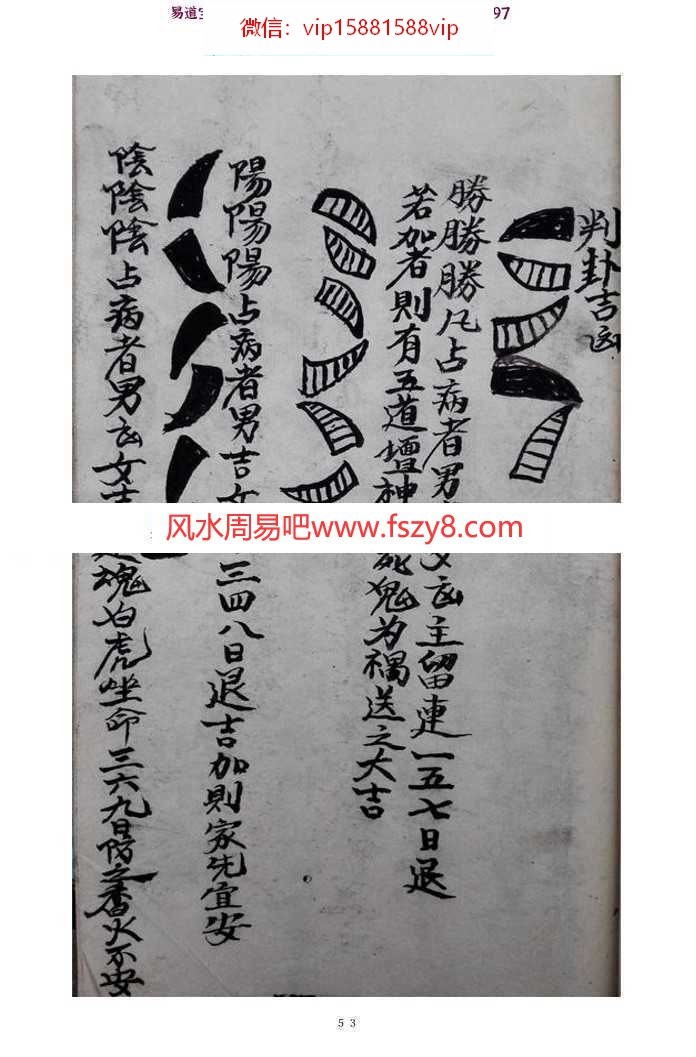 易道
97
微信：vip15881588vip
判卦吉凶
勝勝勝凡占病者男
凶主留連一五七日退
若加者則有五道壇神
鬼为禍送之大吉
陽陽陽占病者男吉女
三四八日退吉加則家先宜安
陰陰陰占病者男凶女吉
魂白虎坐命三六九日防之香火不安
风水周易吧www.fszy8.com
53